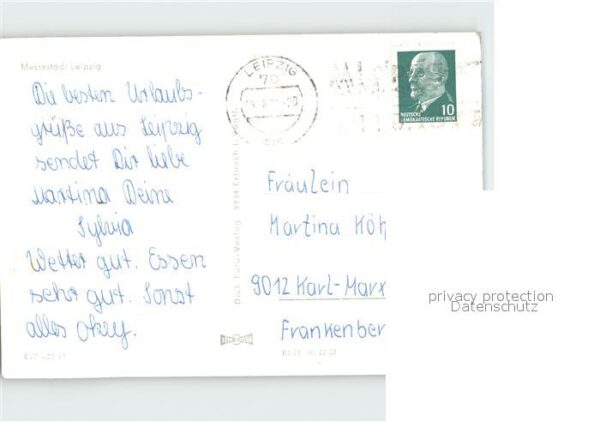 Messestadt Leipzig
Die besten Urlaubs-
grüße aus Leipzig
sendet Dir liebe
Martina Deine
Sylvia
Wetter gut. Essen
sehr gut. Sonst
alles okey.
LEIPZIG
10
DEUTSCHE
DEMOKRATISCHE REPUBLIK
Fräulein
Martina Köh
9012 Karl-Marx
Frankenber
privacy protection
Datenschutz